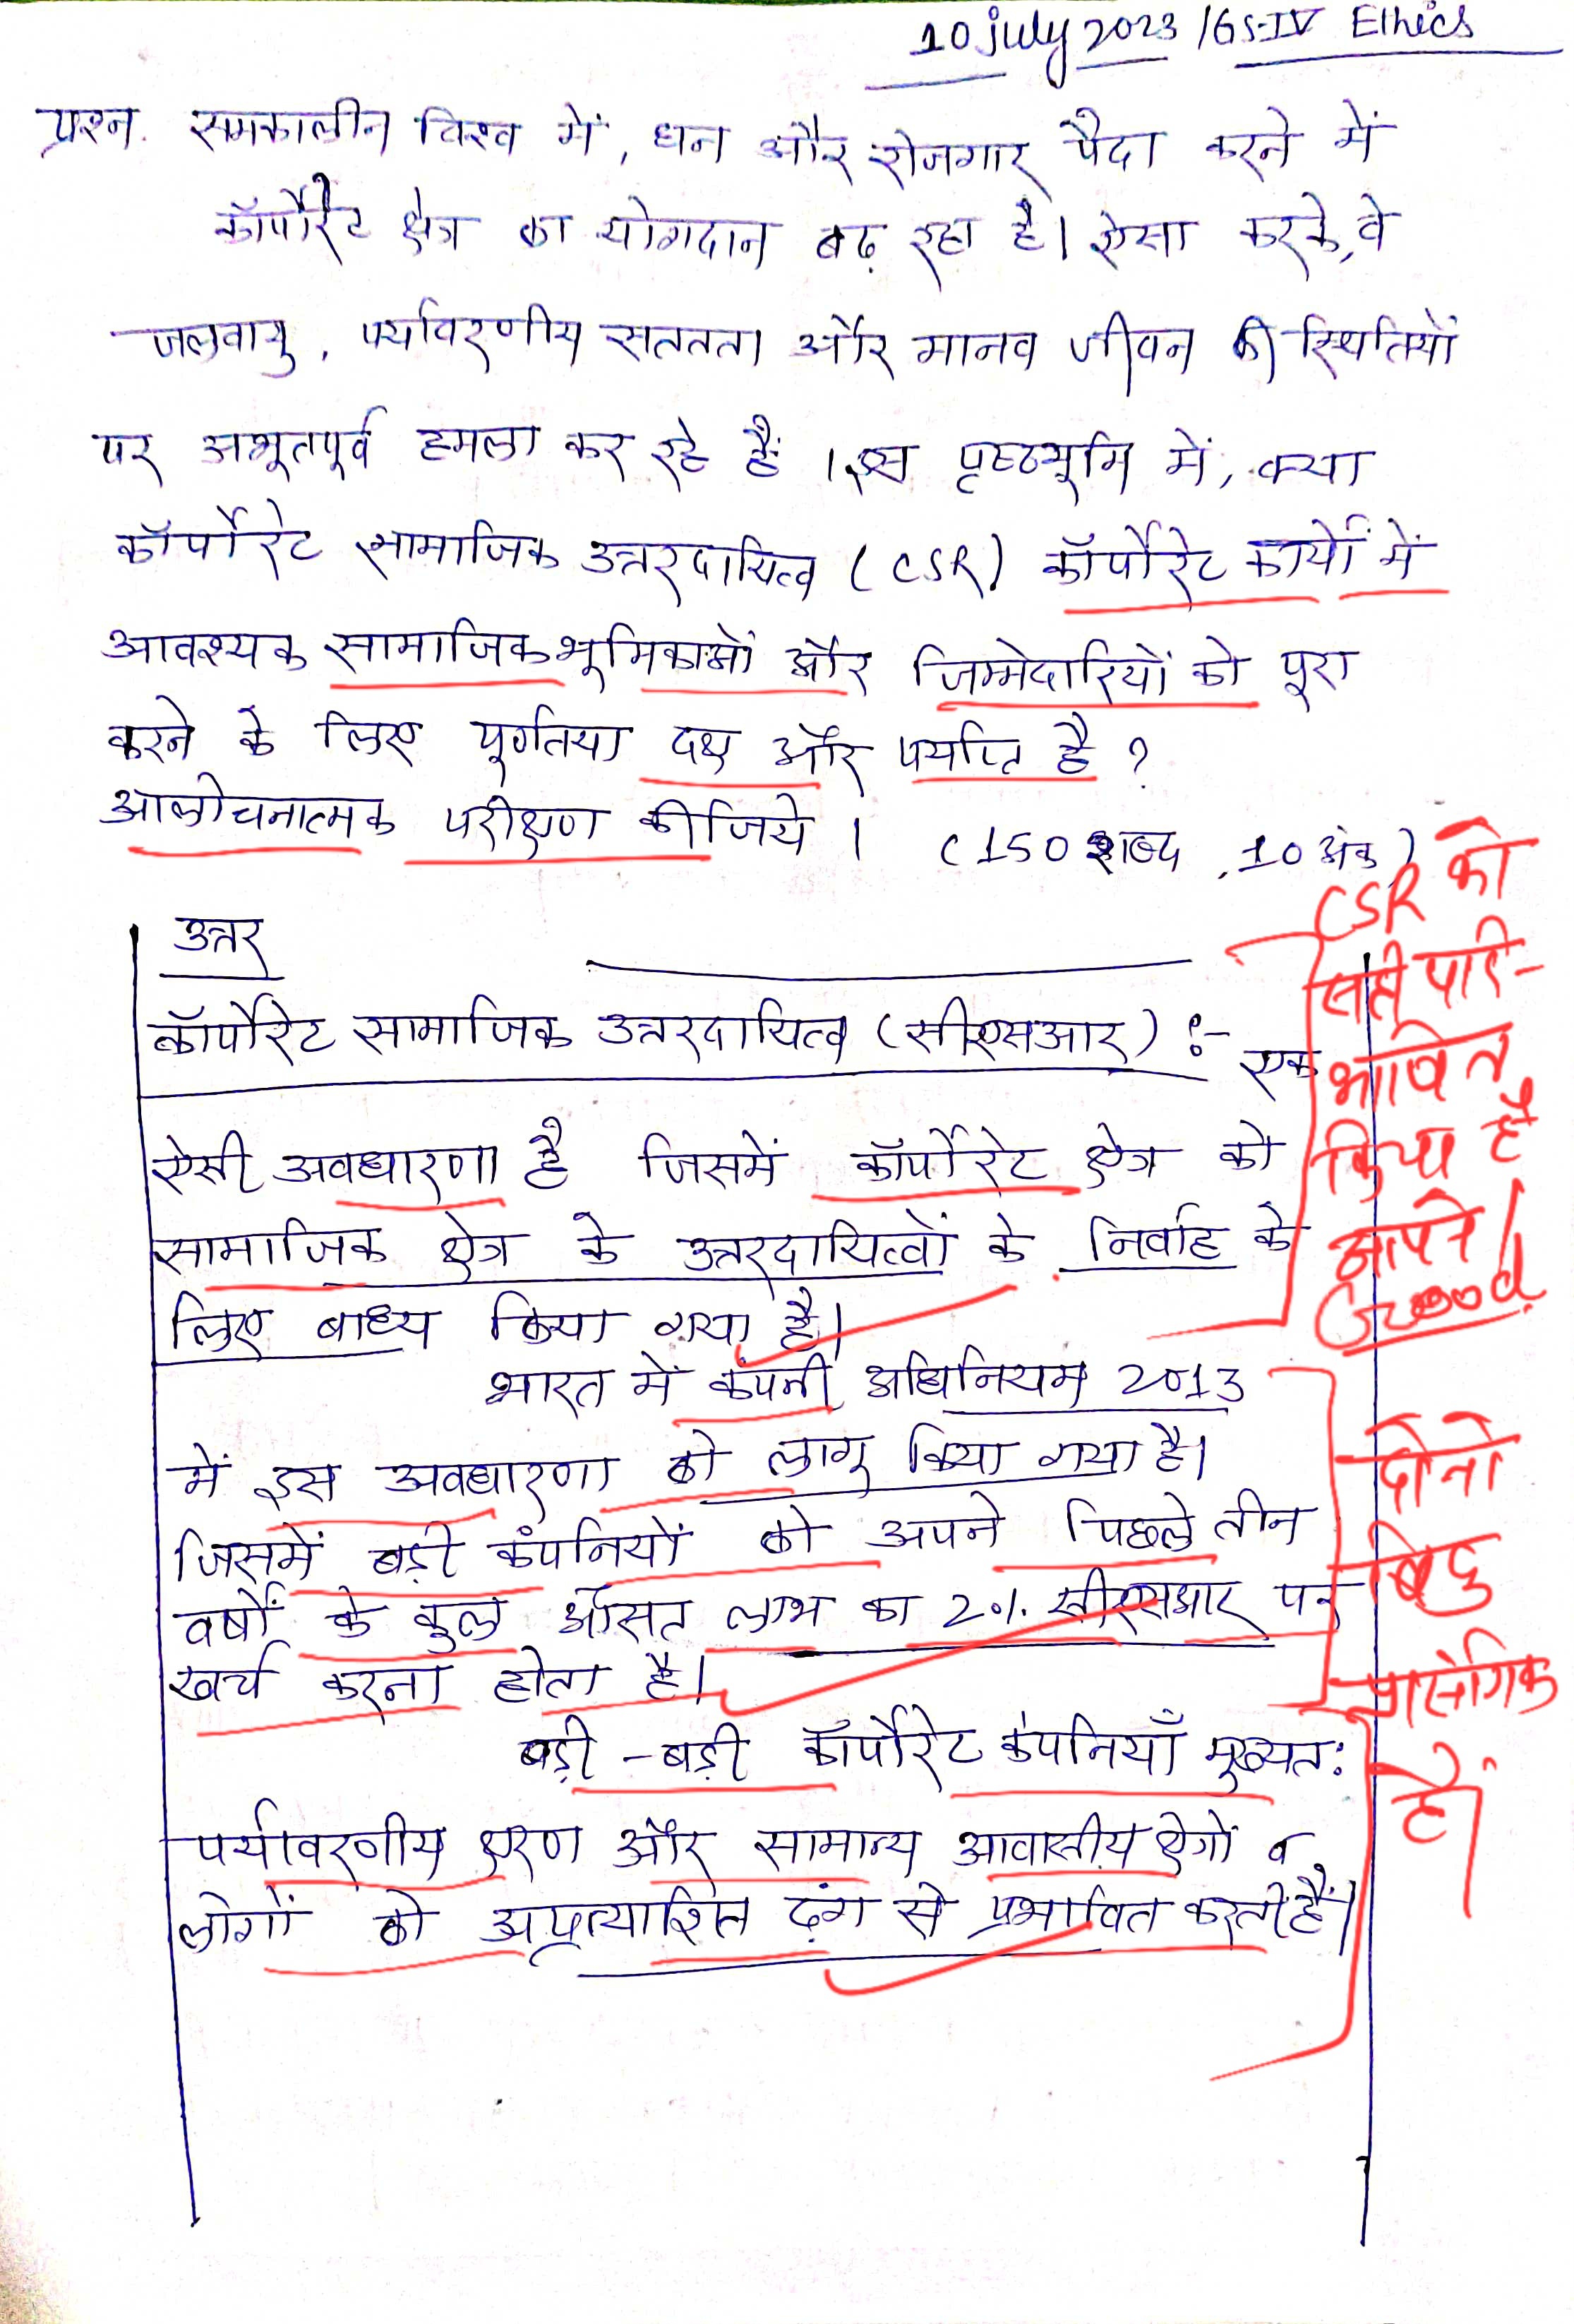 10 July 2023 / GS-IV Ethics
प्रश्न. समकालीन विश्व में, धन और रोजगार पैदा करने में
कॉर्पोरेट क्षेत्र का योगदान बढ़ रहा है। ऐसा करके, वे
जलवायु, पर्यावरणीय सततता और मानव जीवन की स्थितियों
पर अभूतपूर्व हमला कर रहे हैं। इस पृष्ठभूमि में, क्या
कॉर्पोरेट सामाजिक उत्तरदायित्व (CSR) कॉर्पोरेट कार्यों में
आवश्यक सामाजिक भूमिकाओं और जिम्मेदारियों को पूरा
करने के लिए पूर्णतया दक्ष और पर्याप्त है?
आलोचनात्मक परीक्षण कीजिये। (150 शब्द, 10 अंक)
उत्तर
कॉर्पोरेट सामाजिक उत्तरदायित्व (सीएसआर) :- एक
ऐसी अवधारणा है जिसमें कॉर्पोरेट क्षेत्र को
सामाजिक क्षेत्र के उत्तरदायित्वों के निर्वाह के
लिए बाध्य किया गया है।
भारत में कंपनी अधिनियम 2013
में इस अवधारणा को लागू किया गया है।
जिसमें बड़ी कंपनियों को अपने पिछले तीन
वर्षों के कुल औसत लाभ का 2% सीएसआर पर
खर्च करना होता है।
बड़ी-बड़ी कॉर्पोरेट कंपनियाँ मुख्यतः
पर्यावरणीय क्षरण और सामान्य आवासीय क्षेत्रों व
लोगों को अप्रत्याशित ढंग से प्रभावित करती हैं।
CSR को
सही परि-
भाषित
किया है
आपने।
Good
दोनों
बिंदु
प्रासंगिक
हैं।